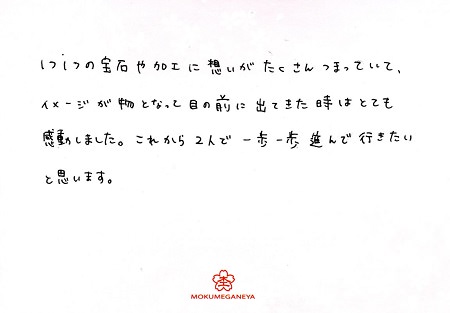 1つ1つの宝石や加工に想いがたくさんつまっていて、
イメージが物となって目の前に出てきた時はとても
感動しました。これから2人で一歩一歩進んで行きたい
と思います。
杢
MOKUMEGANEYA